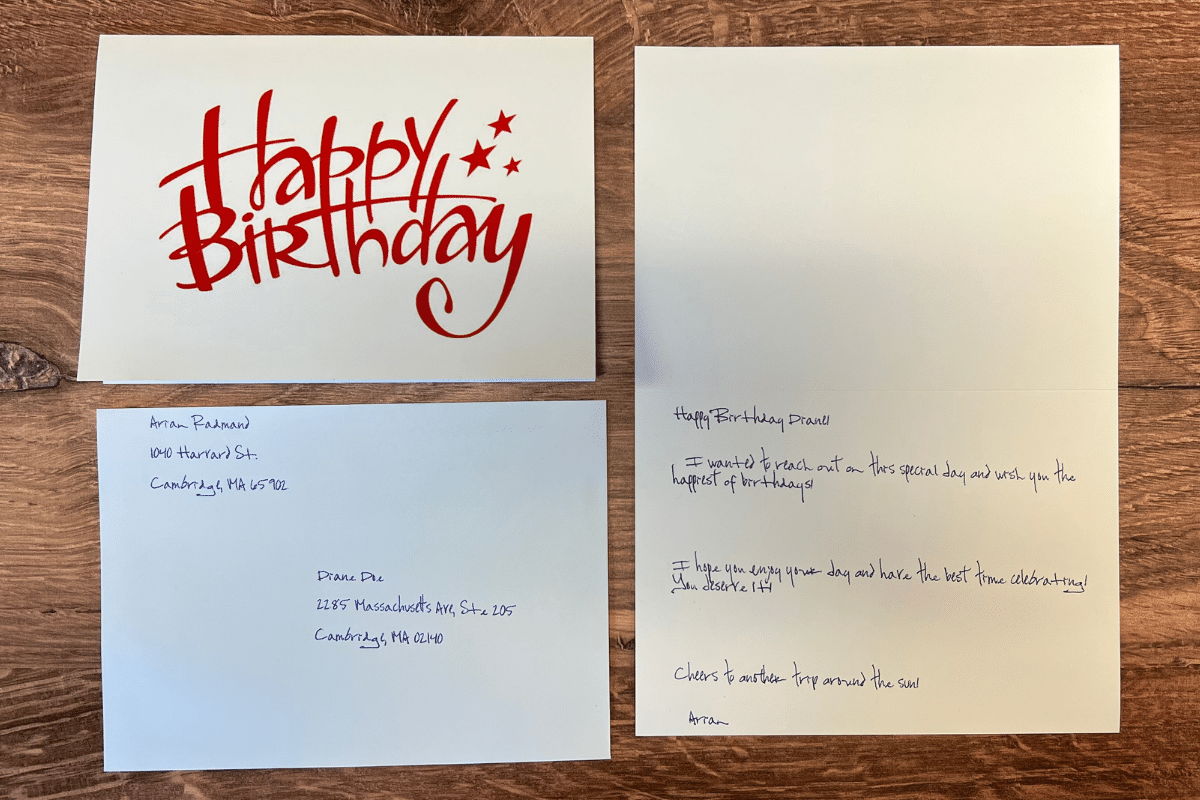 Happy
Birthday
Arian Radmand
1040 Harvard St.
Cambridge, MA 65902
Diane Doe
2285 Massachusetts Ave, Ste 205
Cambridge, MA 02140
Happy Birthday Diane!
I wanted to reach out on this special day and wish you the
happiest of birthdays!
I hope you enjoy your day and have the best time celebrating!
You deserve it!
Cheers to another trip around the sun!
Arian